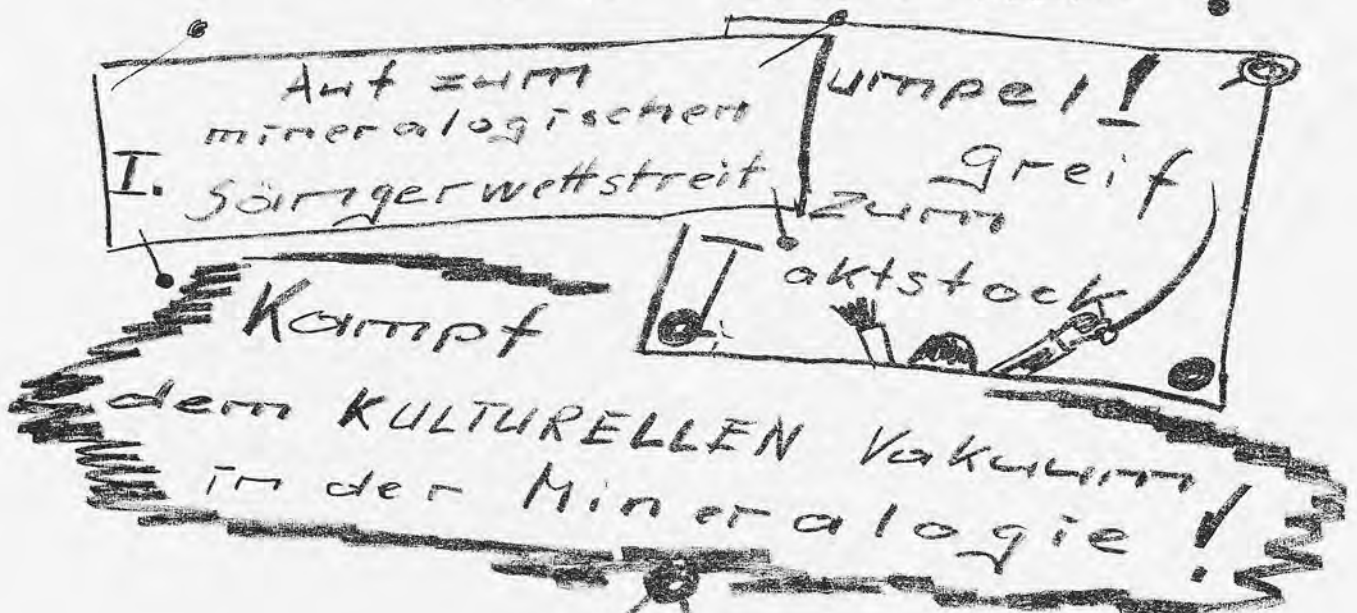 Auf zum
mineralogischen
I. Sängerwettstreit
umpel!
greif
zum
Taktstock
Kampf
dem KULTURELLEN Vakuum
in der Mineralogie!